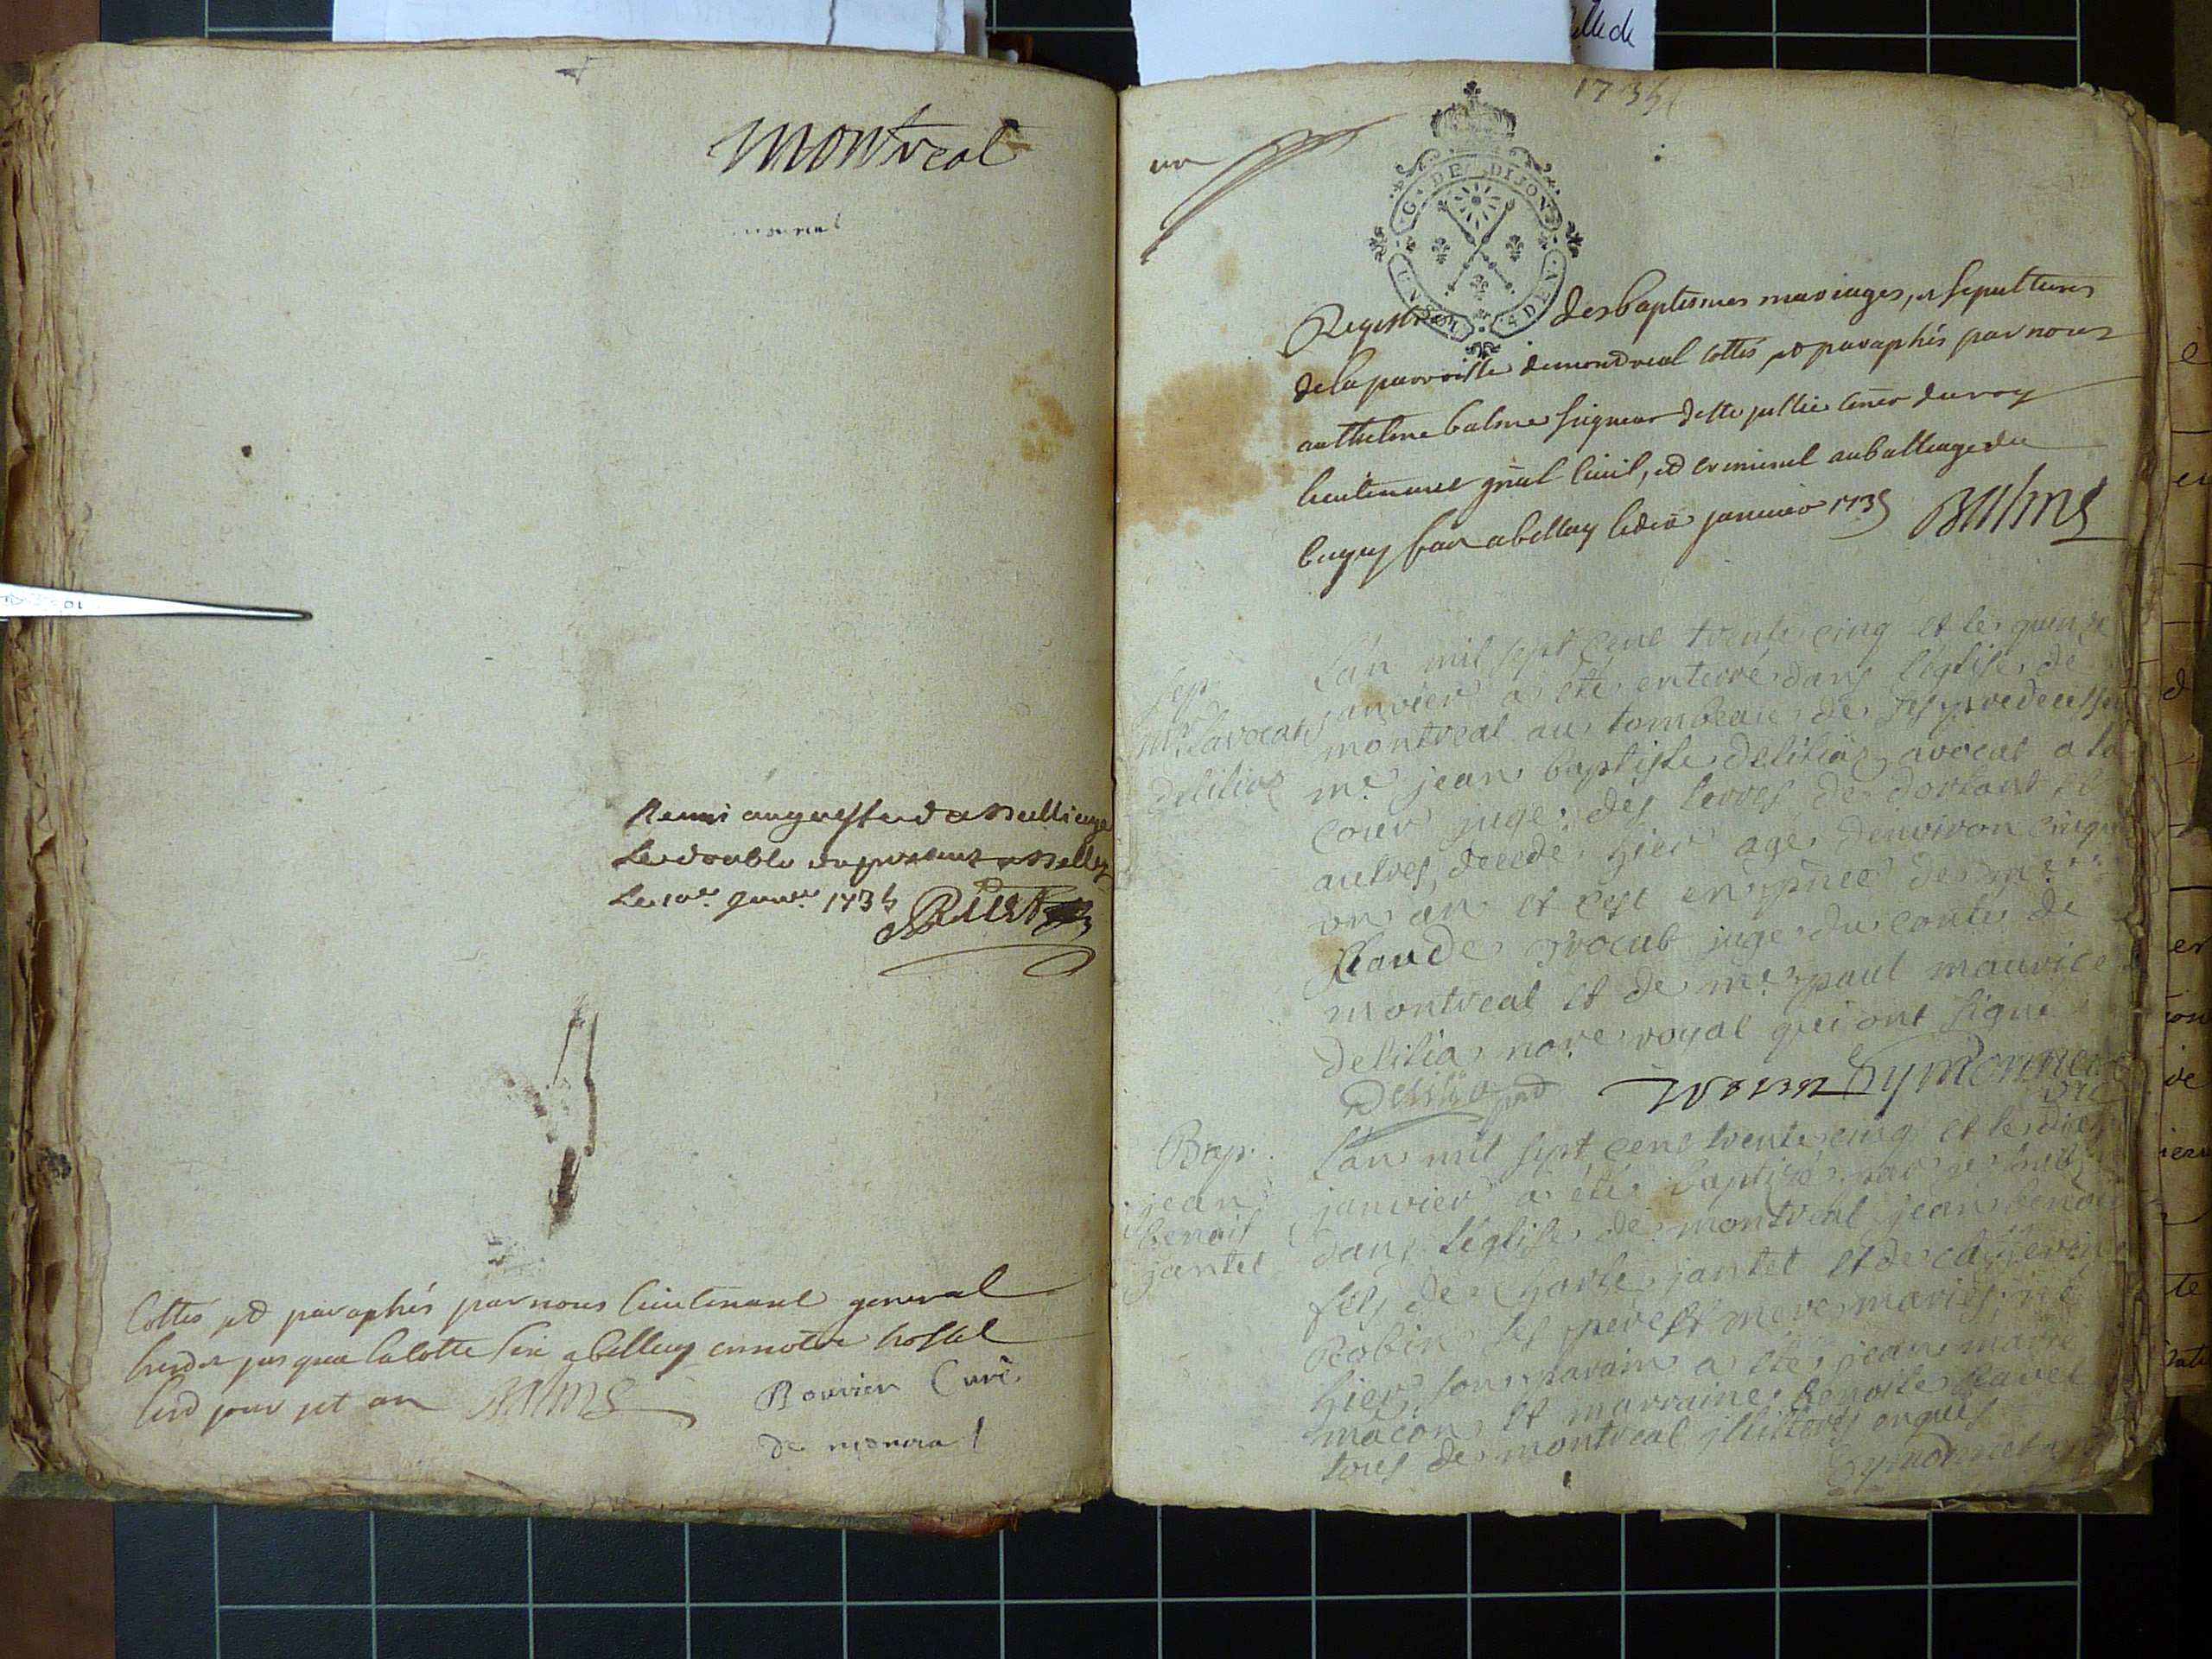 montreal
Remi au greffe du Bailliage
Le double du present a Belley
Le 10e Janv. 1735
Cottés et paraphés par nous lieutenant general
susdit jusqua la cotte six a belley en notre hostel
lesd jour et an Balme
Bouvier Curé
de monreal
elle de
1735
un
G. DE DIJON
Registre des baptesmes mariages, et sepultures
de la parroisse de montreal cottés et paraphés par nous
anthelme balme seigneur de ste jullie coner du roy
lieutenant gnal civil, et criminel au balliage du
bugey fait a belley le dix janvier 1735 Balme
sep.
mr. lavocat
delilia
Lan mil sept cent trente cinq et le quinze
janvier a été enterré dans l'église de
montreal au tombeau de ses predecesseu
mr. jean baptiste delilia avocat a la
cour juge des terres de dortant et
autres, decede hier age denviron cinqu
un an et cest en pnce de mre
claude avocat juge du conté de
montreal et de mre paul maurice
delilia nore royal qui ont signé
Delilia Symonnet
vic
Bap.
jean
benoit
jantet
Lan mil sept cent trente cinq et le dix
janvier a été baptizé par je
dans l'église de montreal jean benoi
fils de charle jantet et de catherin
Robin ses pere et mere mariés né
hier, son parain a été jean marie
macon et marraine benoite
tous de montreal illiterés enquis
Symonnet